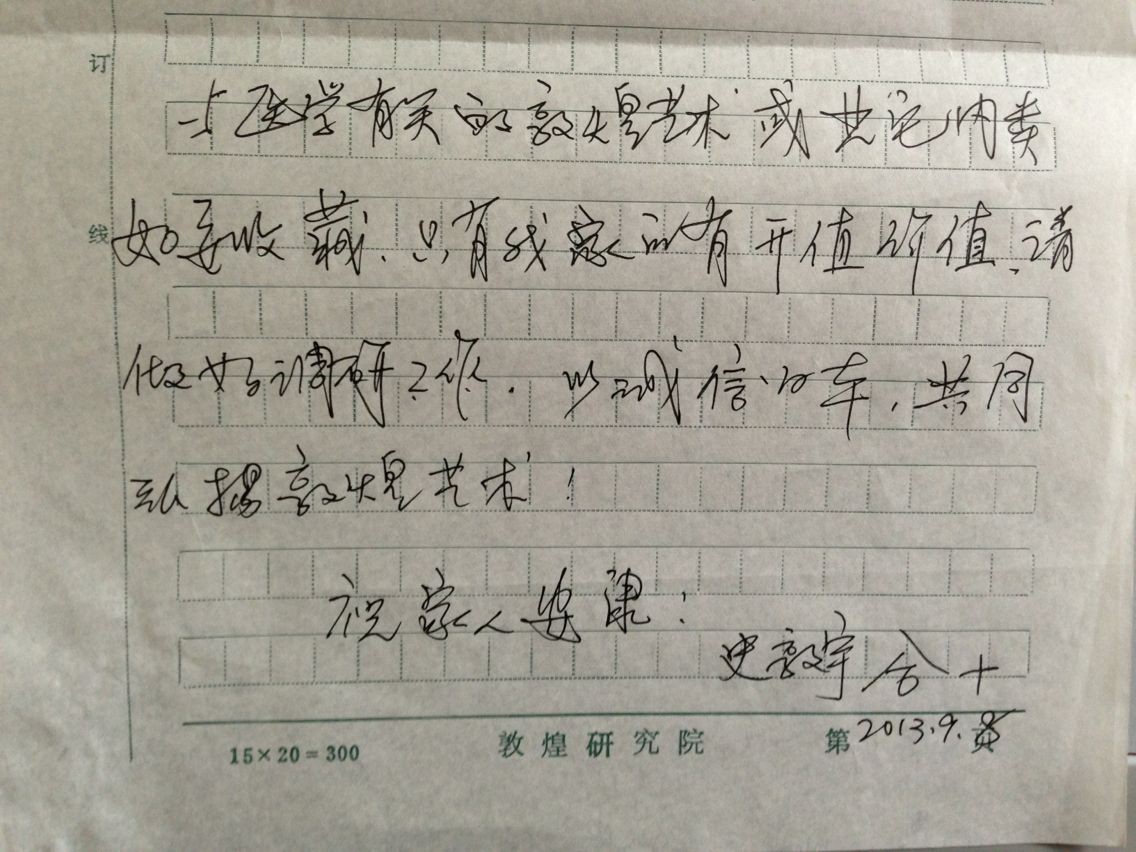 订
与医学有关的敦煌艺术或其它内类
线
如要收藏、只有我家的有开值价值、请
做好调研工作. 以诚信以车, 共同
弘扬敦煌艺术!
祝家人安康!
史敦宇 合十
2013.9.8
15×20=300 敦煌研究院 第 页